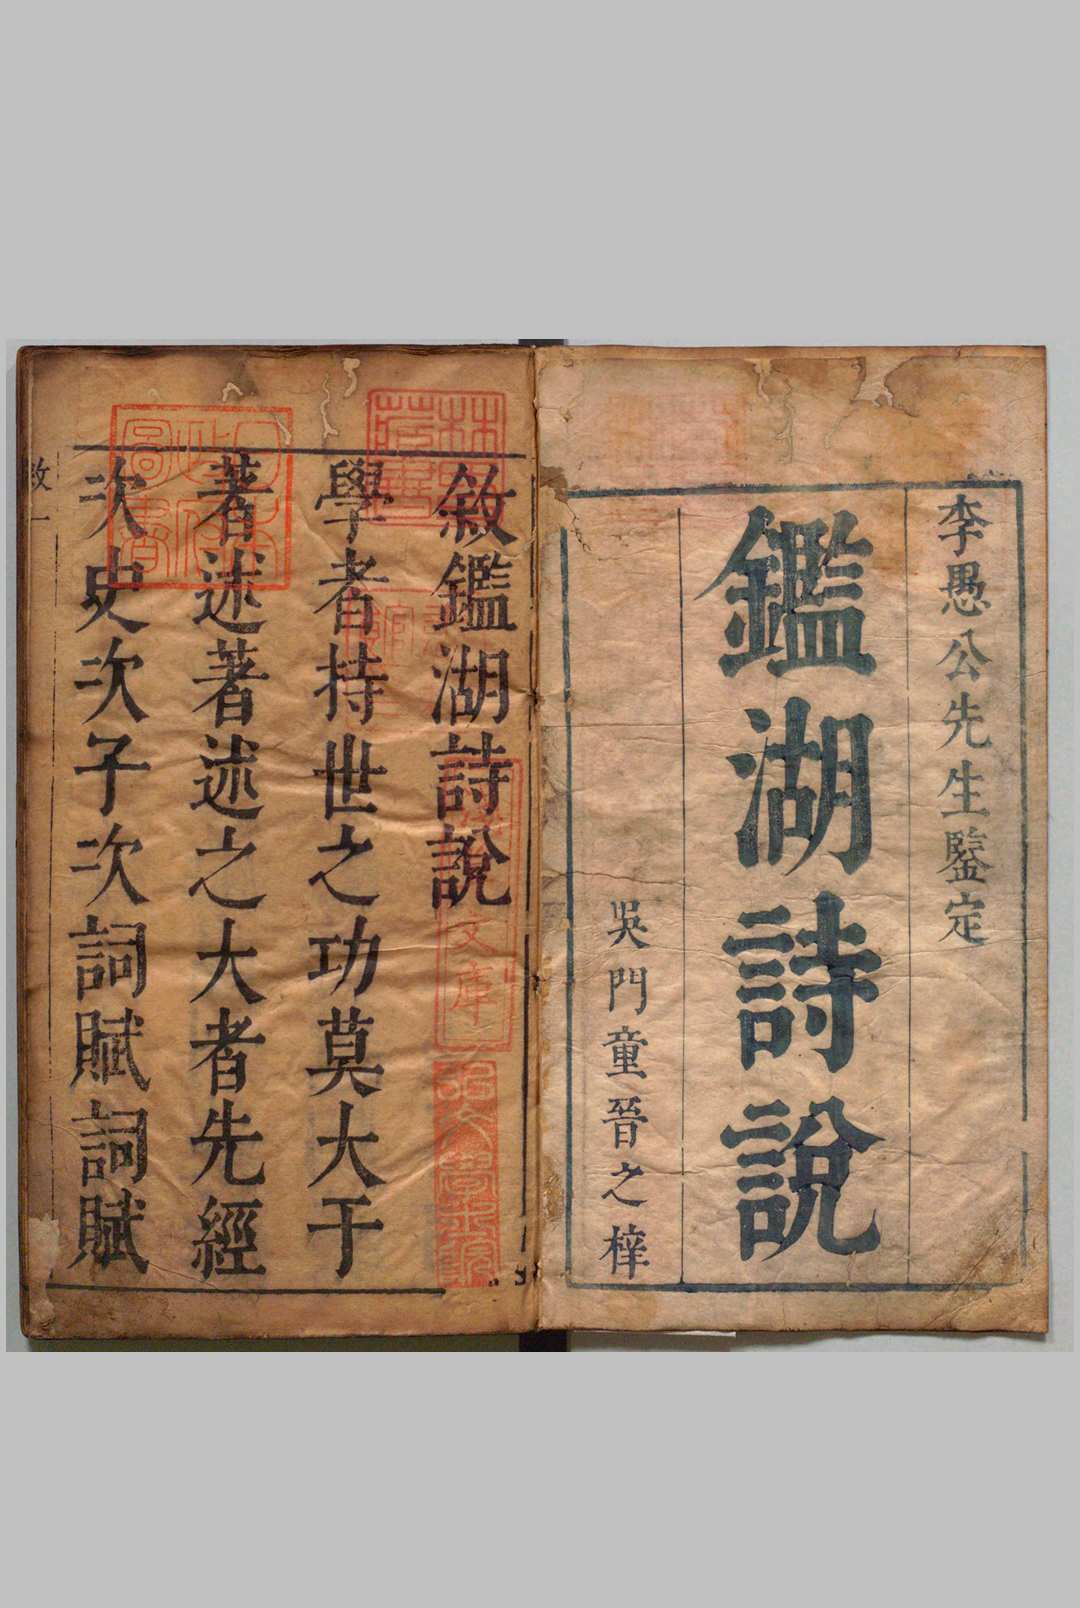 李愚公先生鑒定
鑑湖詩說
吳門童晉之梓
敘鑑湖詩說
學者持世之功莫大于
著述著述之大者先經
次史次子次詞賦詞賦
敘一
文庫